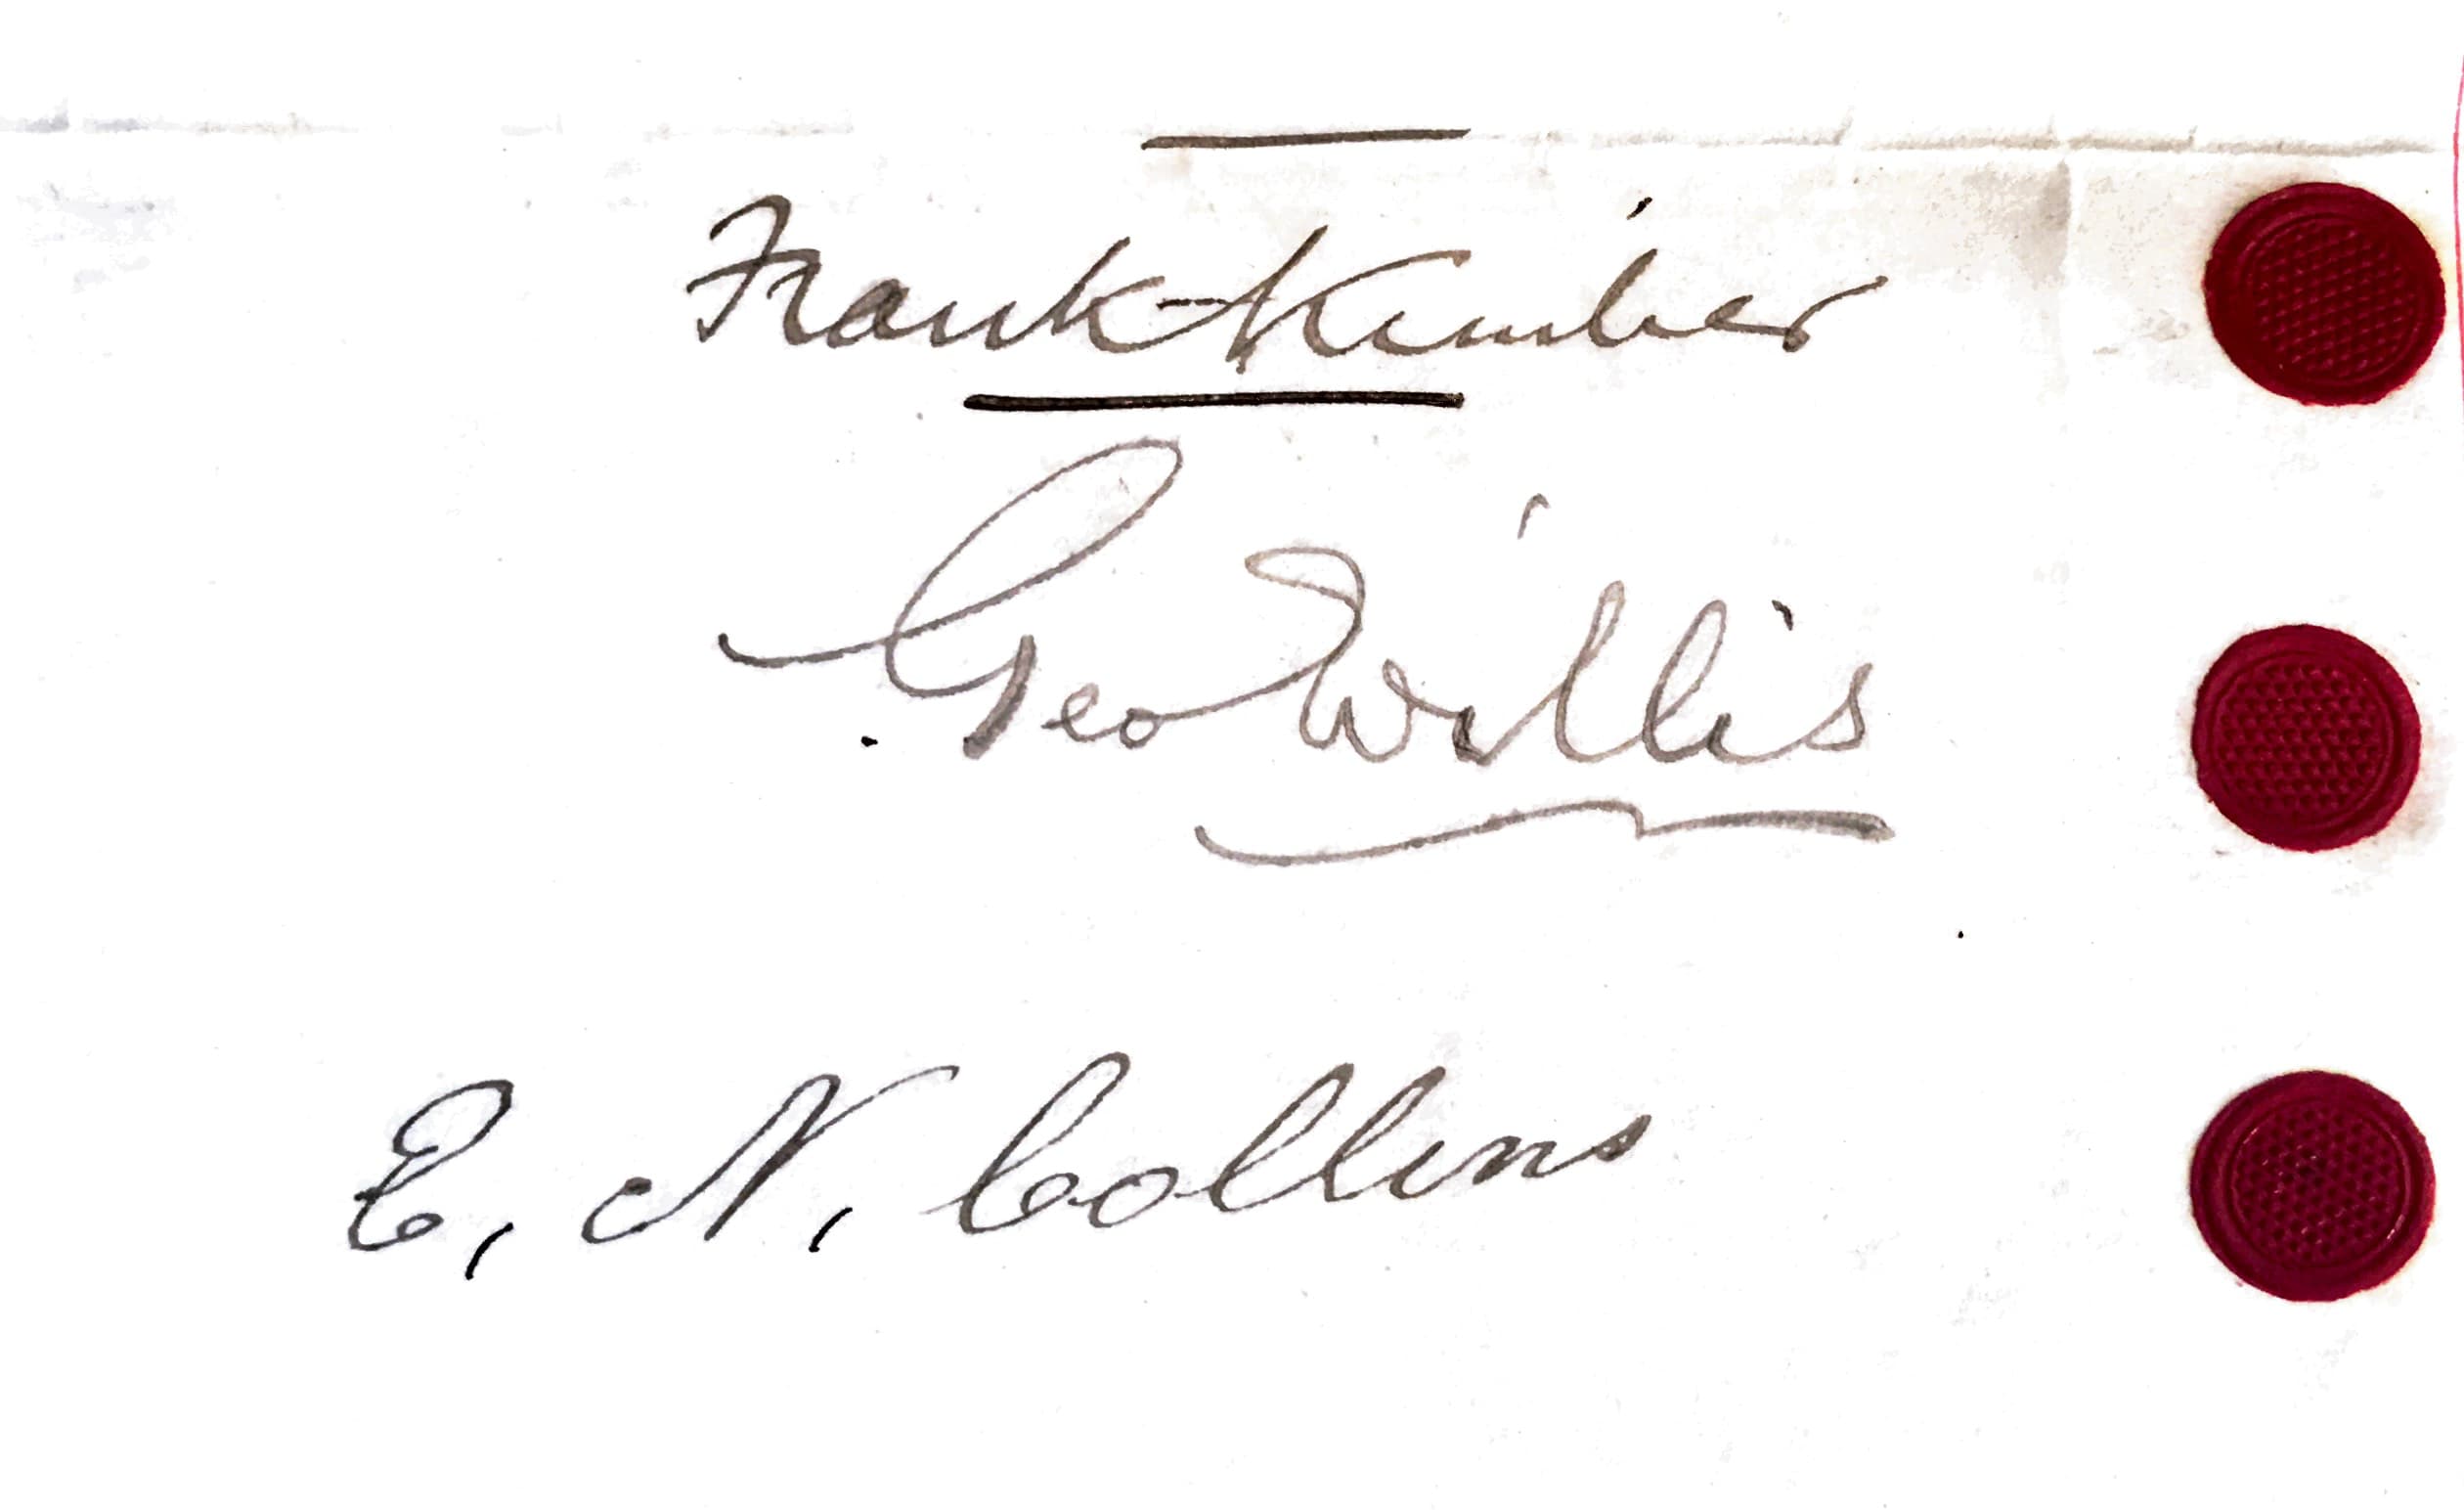 Frank Kimber
Geo Willis
E. N. Collins